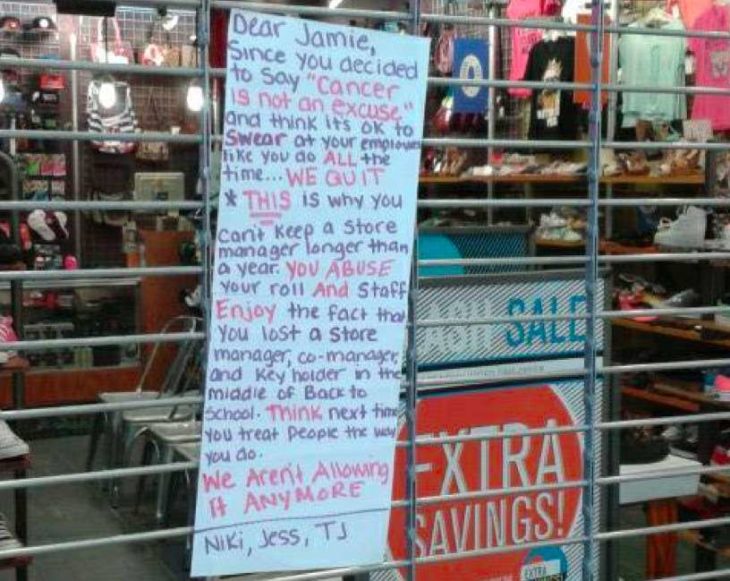 Dear Jamie,
Since you decided
to say "Cancer
is not an excuse"
and think its ok to
swear at your employees
like you do ALL the
time... WE QUIT
* THIS is why you
can't keep a store
manager longer than
a year. YOU ABUSE
your roll And Staff
Enjoy the fact that
you lost a store
manager, co-manager,
and key holder in the
middle of Back to
School. Think next time
you treat People the way
you do.
We Aren't Allowing
It ANYMORE
Niki, Jess, TJ
SALE
EXTRA
SAVINGS!
EXTRA